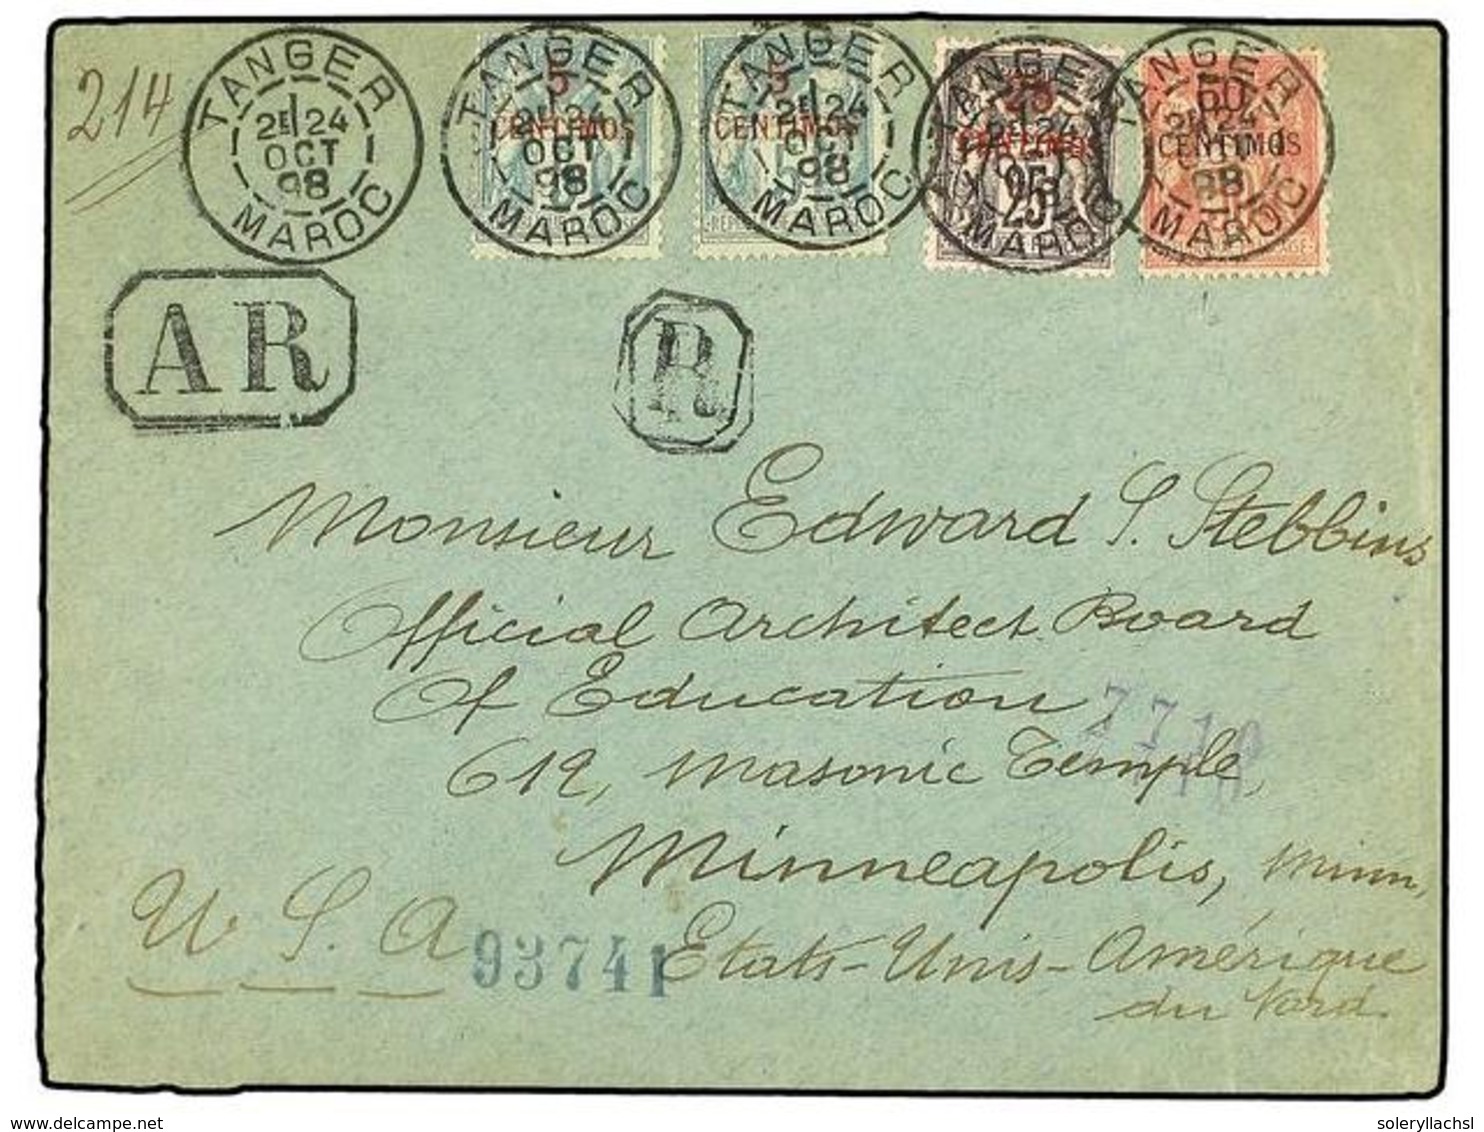 214
TANGER
2E 24
OCT
98
MAROC
TANGER
2E 24
OCT
98
MAROC
5
CENTIMOS
TANGER
2E 24
OCT
98
MAROC
5
CENTIMOS
TANGER
2E 24
MAROC
25
CENTIMOS
25
TANGER
2E 24
98
MAROC
50
CENTIMOS
AR
R
Monsieur Edward S. Stebbins
Official Architect Board
Of Education,
7710
619, Masonic Temple,
Minneapolis, Minn,
U S. A
93741
Etats-Unis-Amérique
du Nord.
soleryllachsl